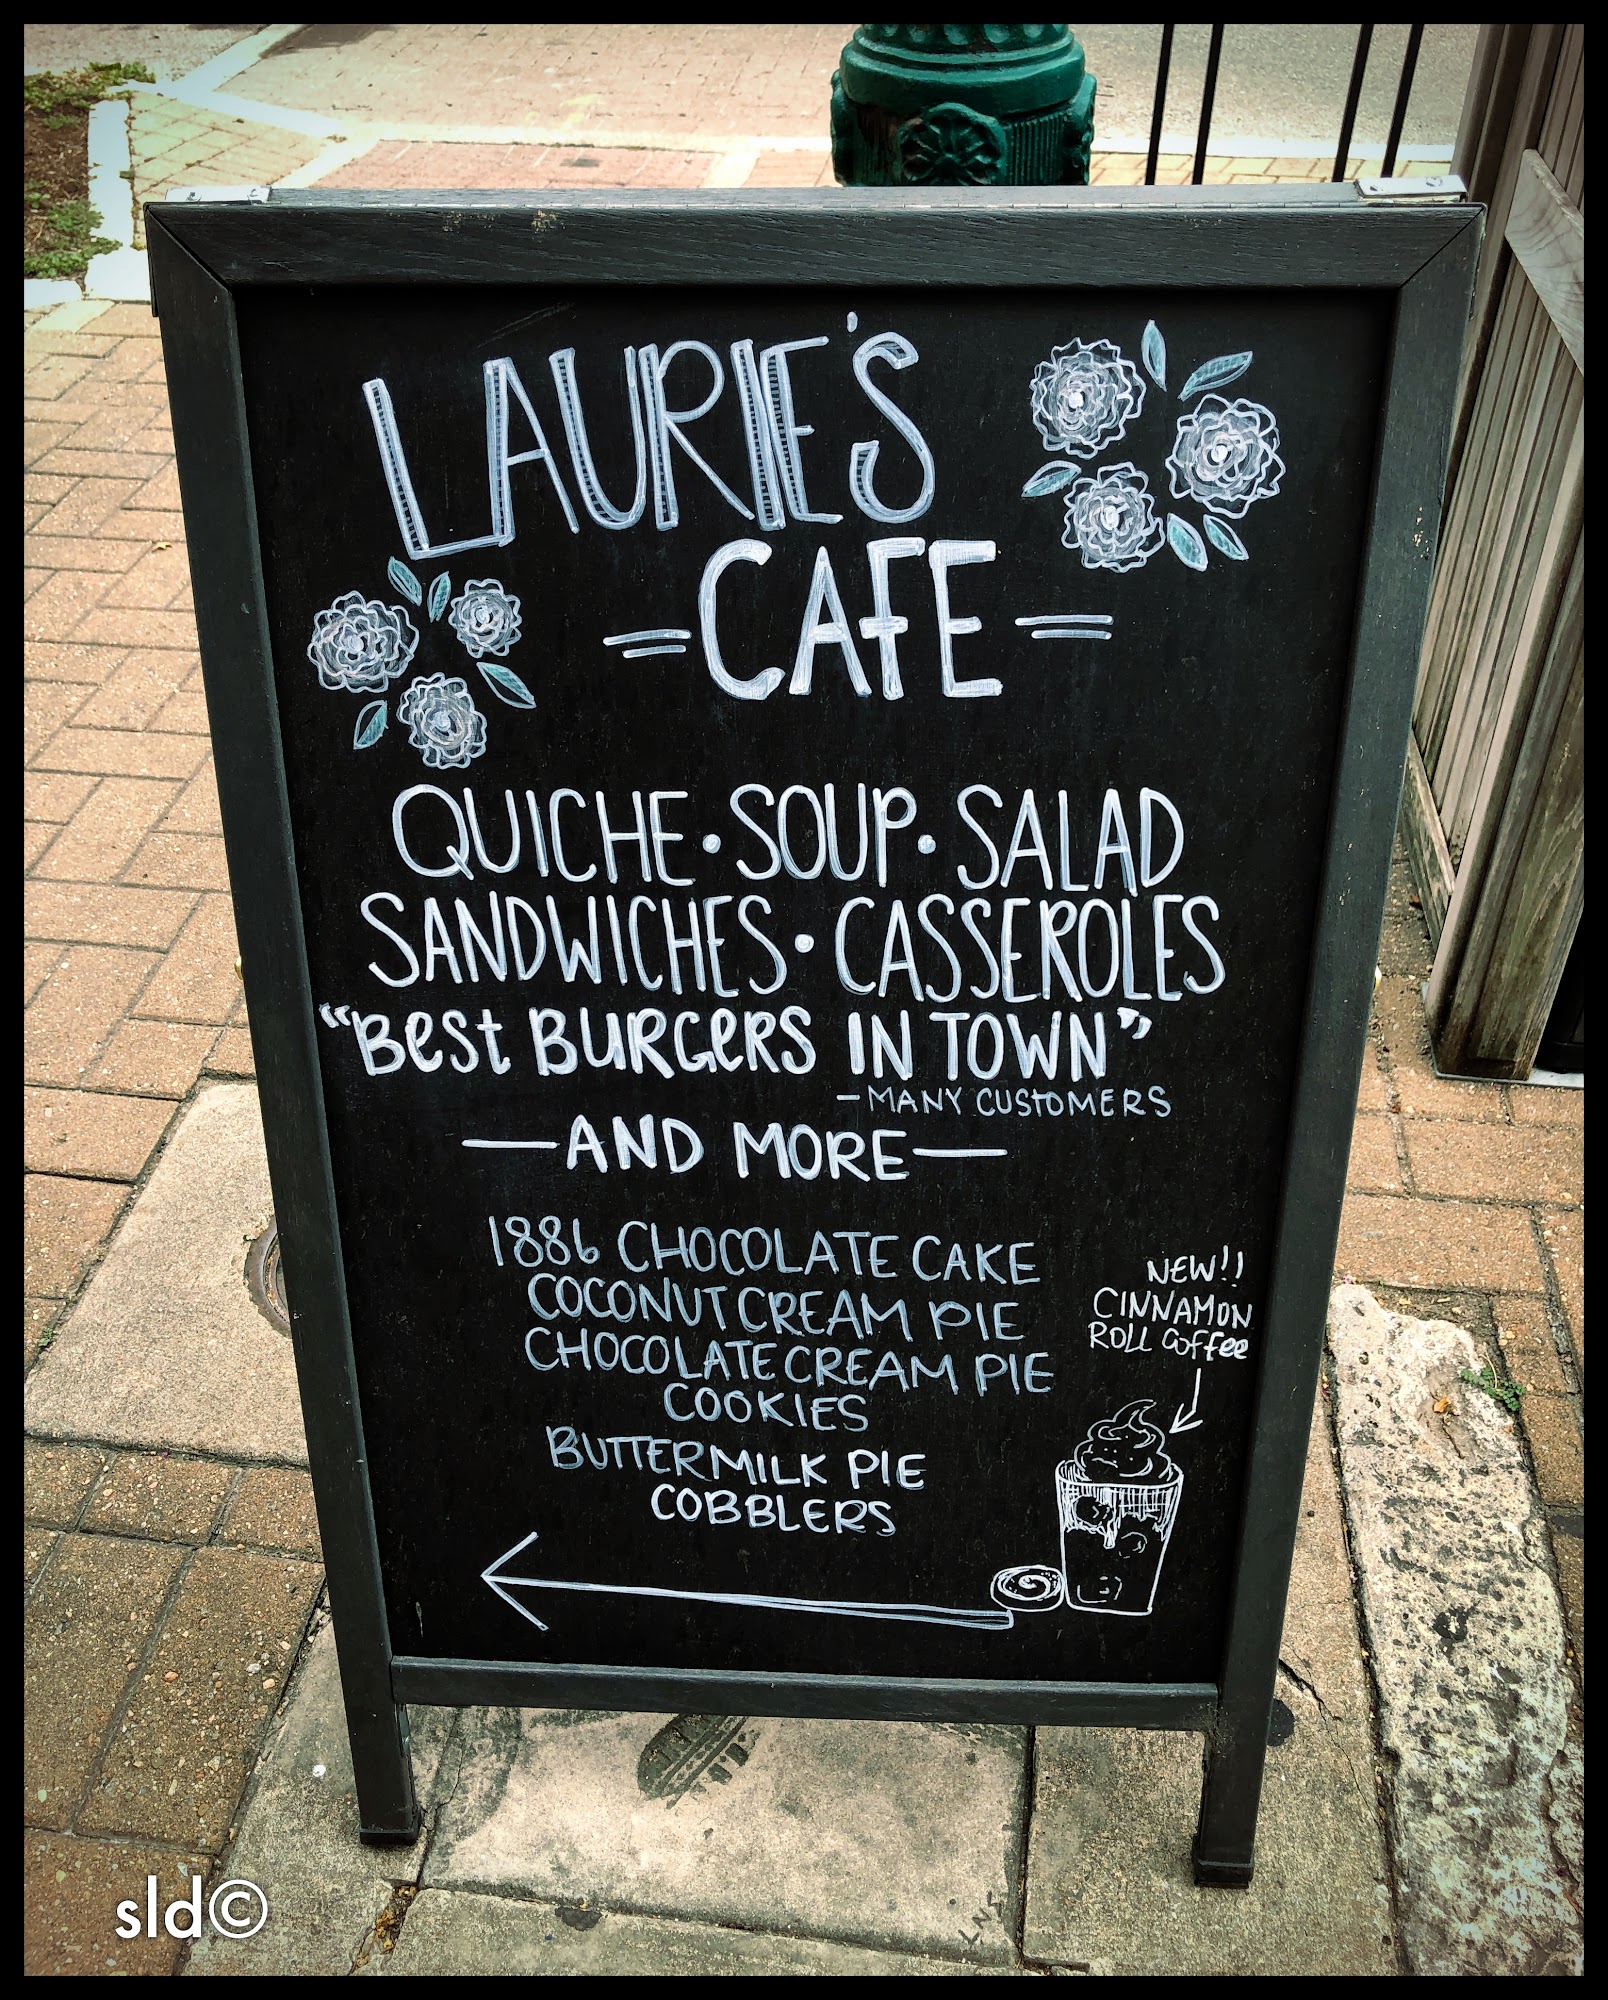 LAURIE'S
CAFE
QUICHE • SOUP • SALAD
SANDWICHES • CASSEROLES
"BEST BURGERS IN TOWN"
- MANY CUSTOMERS
— AND MORE —
1886 CHOCOLATE CAKE
COCONUT CREAM PIE
CHOCOLATE CREAM PIE
COOKIES
BUTTERMILK PIE
COBBLERS
NEW!!
CINNAMON
ROLL COFFEE
sld©